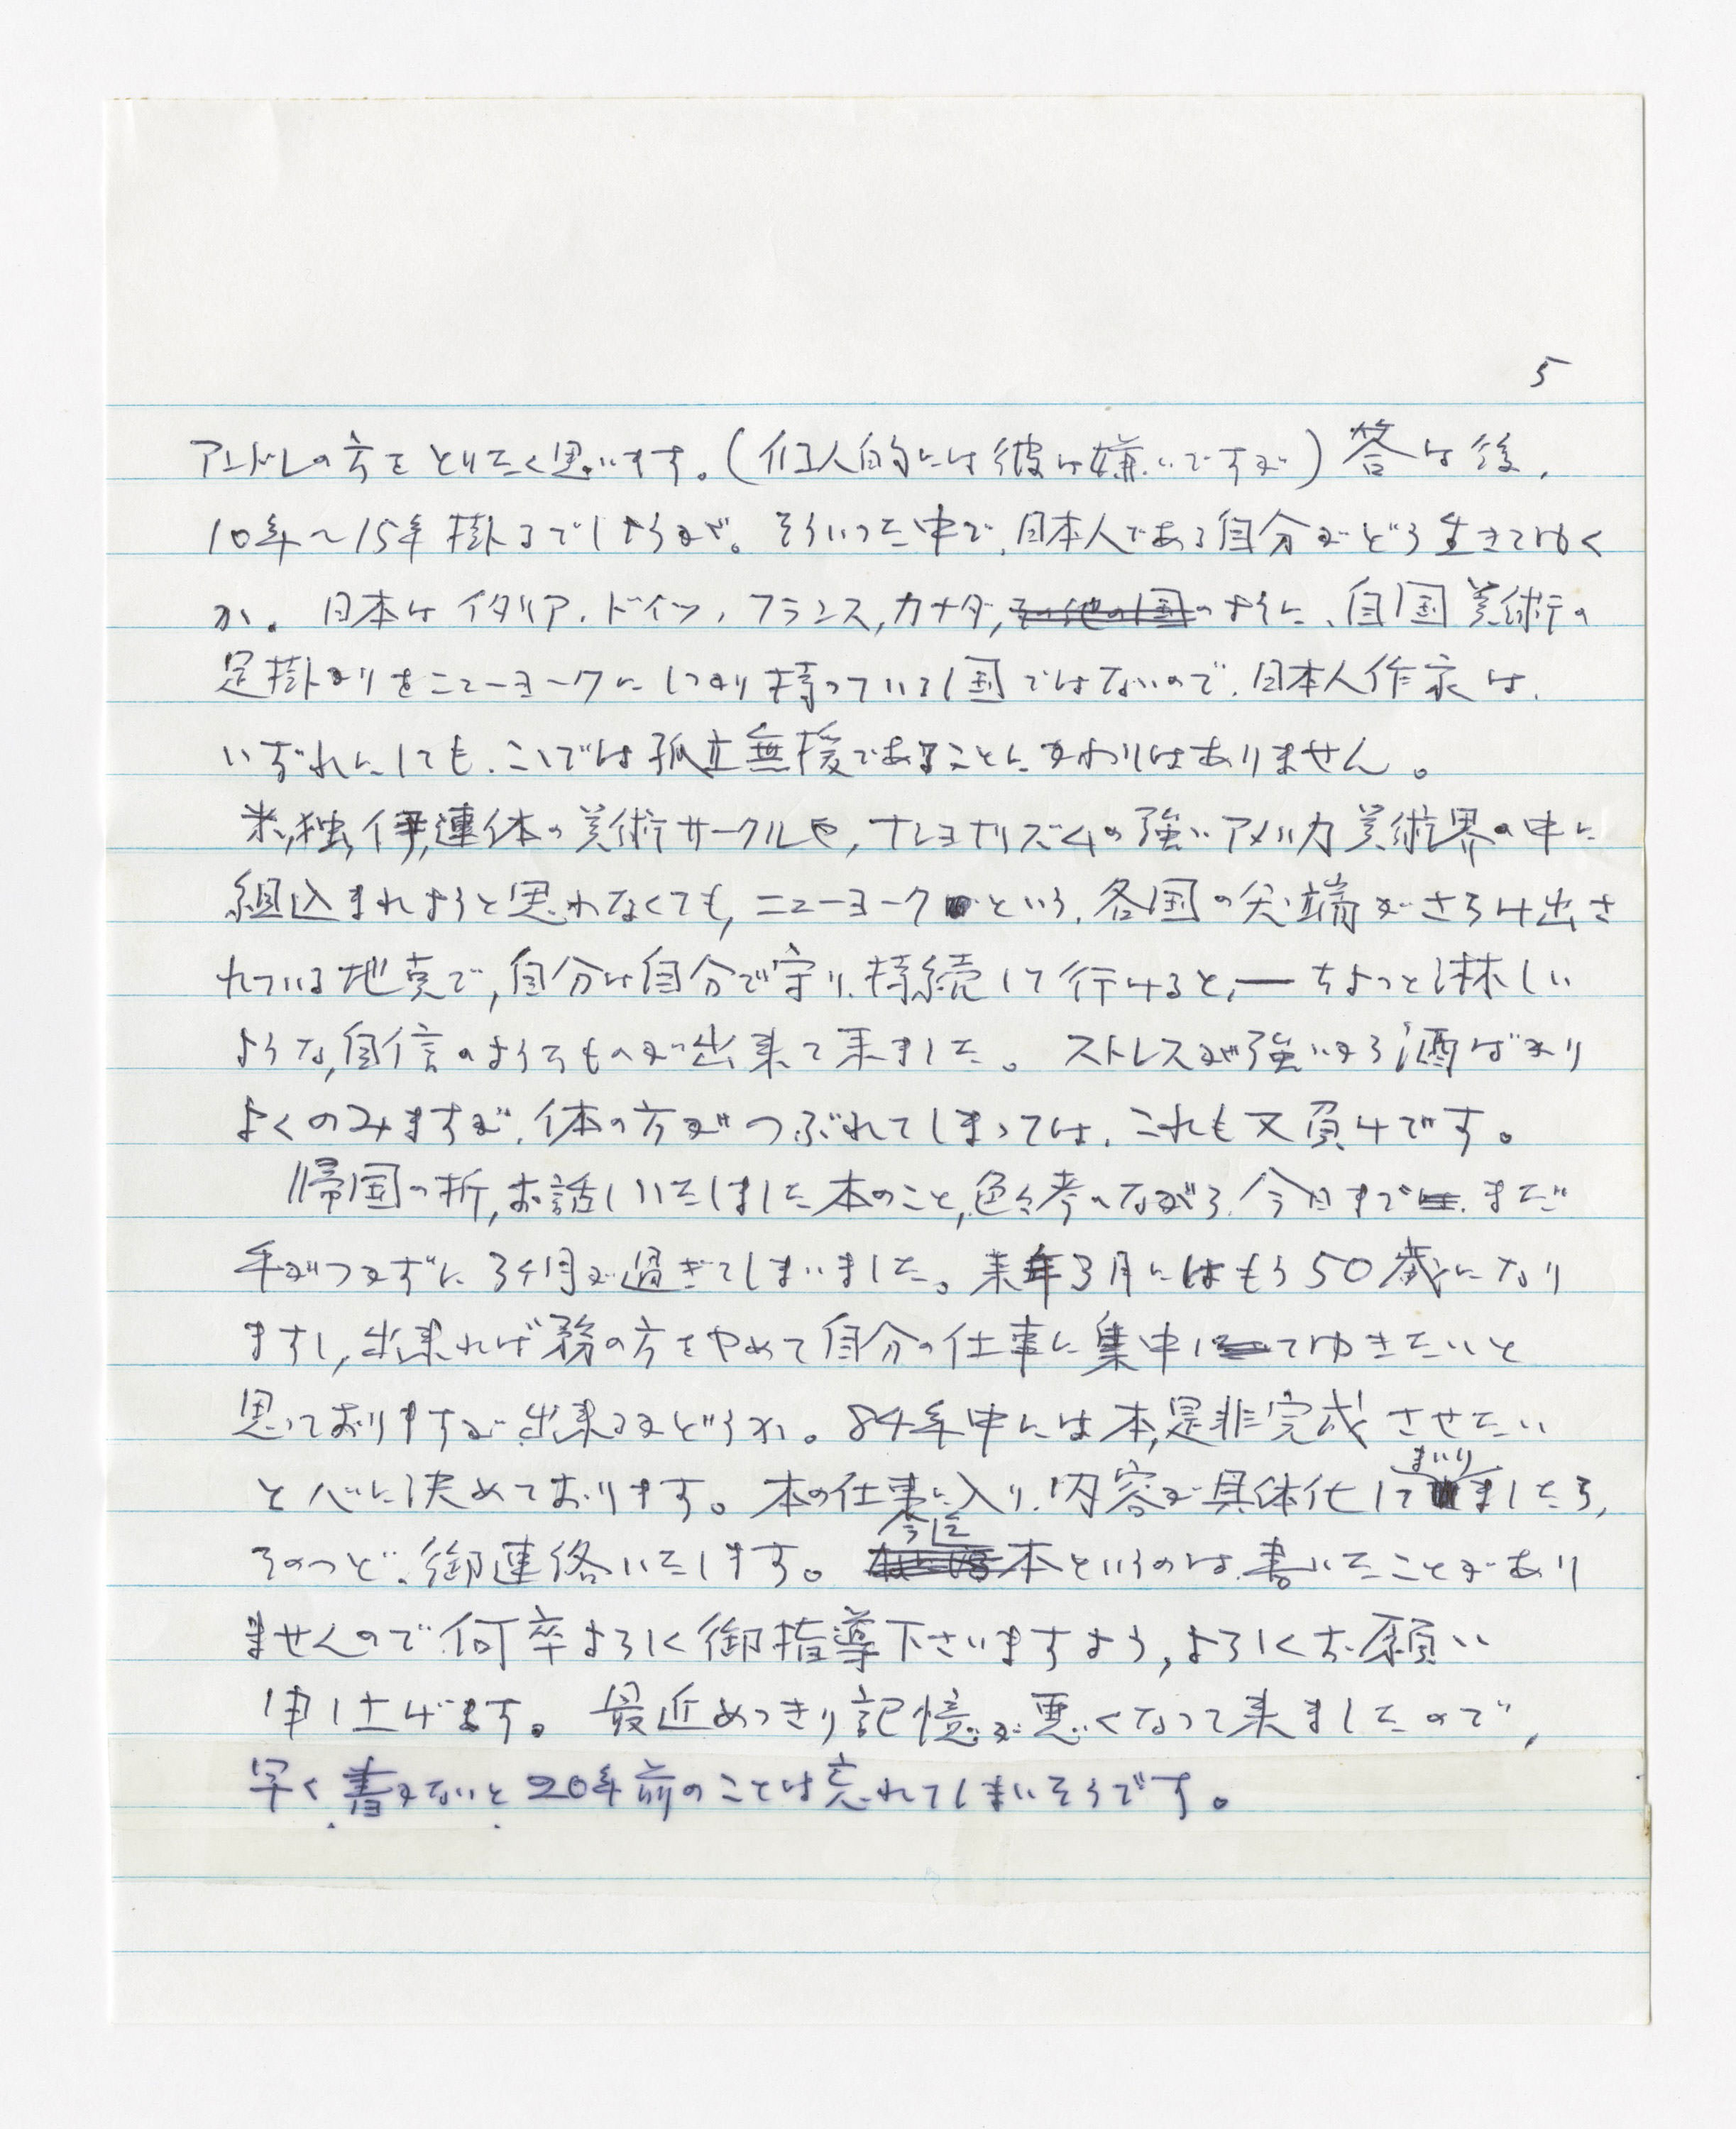 5
アンドレの方をとりたく思います。(個人的には彼は嫌いですが)答は後、
10年〜15年掛るでしょうが。そういった中で、日本人である自分がどう生きてゆく
か。日本はイタリア、ドイツ、フランス,カナダ,その他の国のように、自国美術の
足掛かりをニューヨークにしっかり持っている国ではないので、日本人作家は、
いずれにしても、こゝでは孤立無援であることにかわりはありません。
米,独,伊,連体の美術サークルや,ナショナリズムの強いアメリカ美術界の中に
組込まれようと思わなくても,ニューヨークという、各国の尖端がさらけ出さ
れている地点で,自分は自分で守り、持続して行けると,—ちょっと淋しい
ような,自信のようなものが出来て来ました。ストレスが強いから酒ばかり
よくのみますが、体の方がつぶれてしまっては、これも又負けです。
帰国の折,お話しいたしました本のこと,色々考へながら、今日まで、まだ
手がつかずに3ヶ月が過ぎてしまいました。来年3月にはもう50歳になり
ますし,出来れば務の方をやめて自分の仕事に集中してゆきたいと
思っておりますが、出来るかどうか。84年中には本,是非完成させたい
と心に決めております。本の仕事に入り、内容が具体化してまいりましたら,
そのつど、御連絡いたします。今迄本というのは、書いたことがあり
ませんので、何卒よろしく御指導下さいますよう,よろしくお願い
申し上げます。最近めっきり記憶が悪くなって来ましたので,
早く書かないと20年前のことは忘れてしまいそうです。